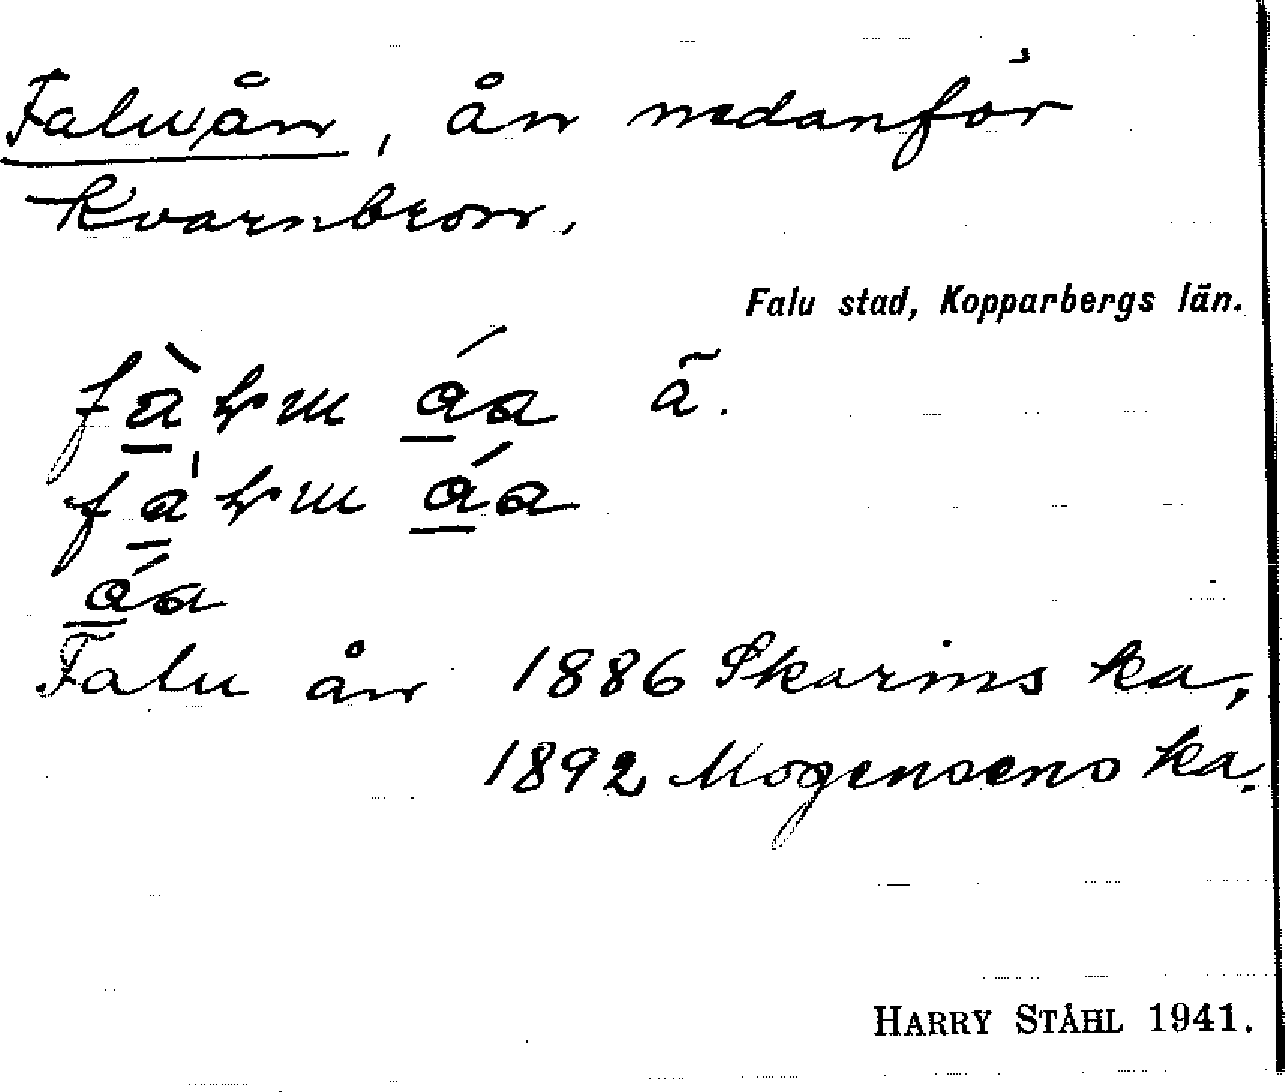 Faluån, ån nedanför
Kvarnbron.
Falu stad, Kopparbergs län.
Falu ån 1886 Skarins ka,
1892 Mogensens ka.
HARRY STÅHL 1941.